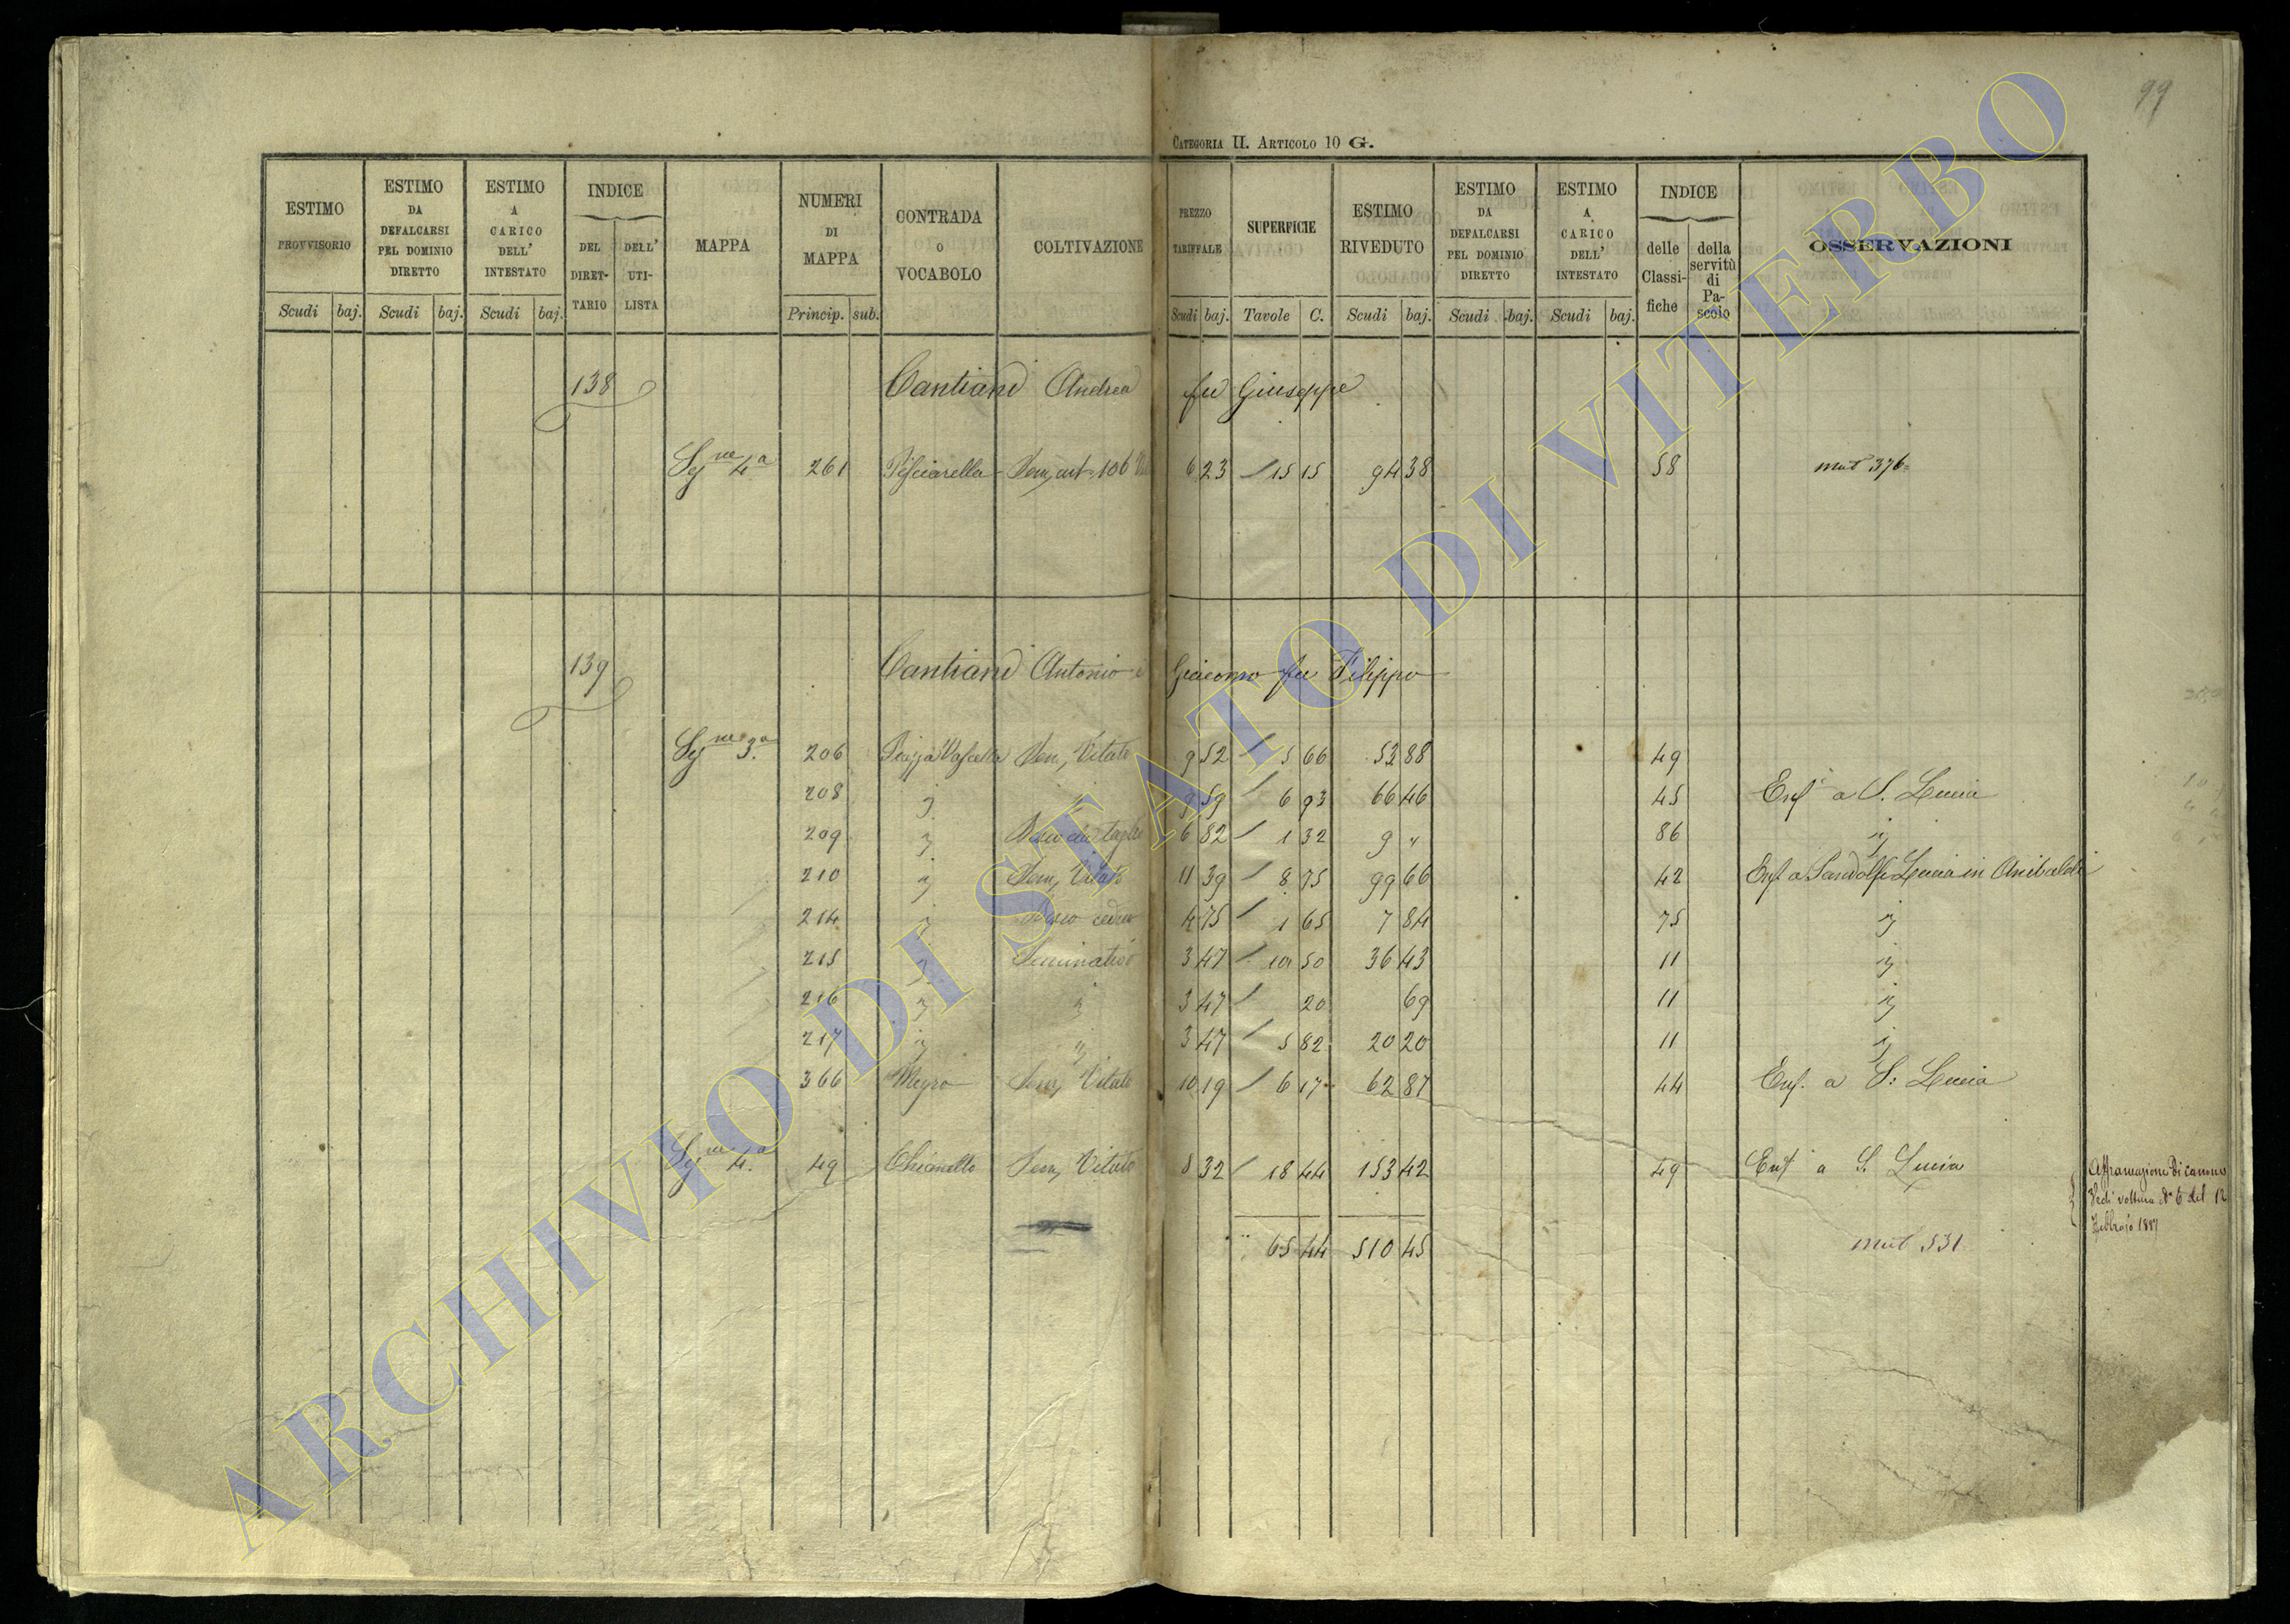 99
CATEGORIA II. ARTICOLO 10 G.
ESTIMO PROVVISORIO Scudi baj.
ESTIMO DA DEFALCARSI PEL DOMINIO DIRETTO Scudi baj.
ESTIMO A CARICO DELL' INTESTATO Scudi baj.
INDICE DEL DIRETTARIO DELL' UTILISTA
MAPPA
NUMERI DI MAPPA Princip. sub.
CONTRADA O VOCABOLO
COLTIVAZIONE
PREZZO TARIFFALE Scudi baj.
SUPERFICIE Tavole C.
ESTIMO RIVEDUTO Scudi baj.
ESTIMO DA DEFALCARSI PEL DOMINIO DIRETTO Scudi baj.
ESTIMO A CARICO DELL' INTESTATO Scudi baj.
INDICE delle Classifiche della servitù di Pascolo
OSSERVAZIONI
138 Cantiani Andrea fu Giuseppe
Sez ne 4ª 261 Pisciarella Sem, 106 6 23 15 15 94 38 58 mut 376
139 Cantiani Antonio e Giacomo fu Filippo
Sez ne 3ª 206 Sem, Vitato 9 52 5 66 53 88 49
208 " " 9 59 6 93 66 46 45 Enf a S. Lucia
209 " Bosco ced 6 82 1 32 9 " 86 "
210 " Sem, Vitato 11 39 8 75 99 66 42 Enf a Lucia in Anibaldi
214 " Bosco ceduo 4 75 1 65 7 84 75 "
215 " Seminativo 3 47 10 50 36 43 11 "
216 " " 3 47 20 69 11 "
217 " " 3 47 5 82 20 20 11 "
366 Sem, Vitato 10 19 6 17 62 87 44 Enf. a S: Lucia
Sez ne 4ª 49 Chianetto Sem, Vitato 8 32 18 44 153 42 49 Enf a S. Lucia
Affrancazione di canone
Vedi voltura Nº 6 del 12
Febbraio
65 44 510 45 mut 531
ARCHIVIO DI STATO DI VITERBO